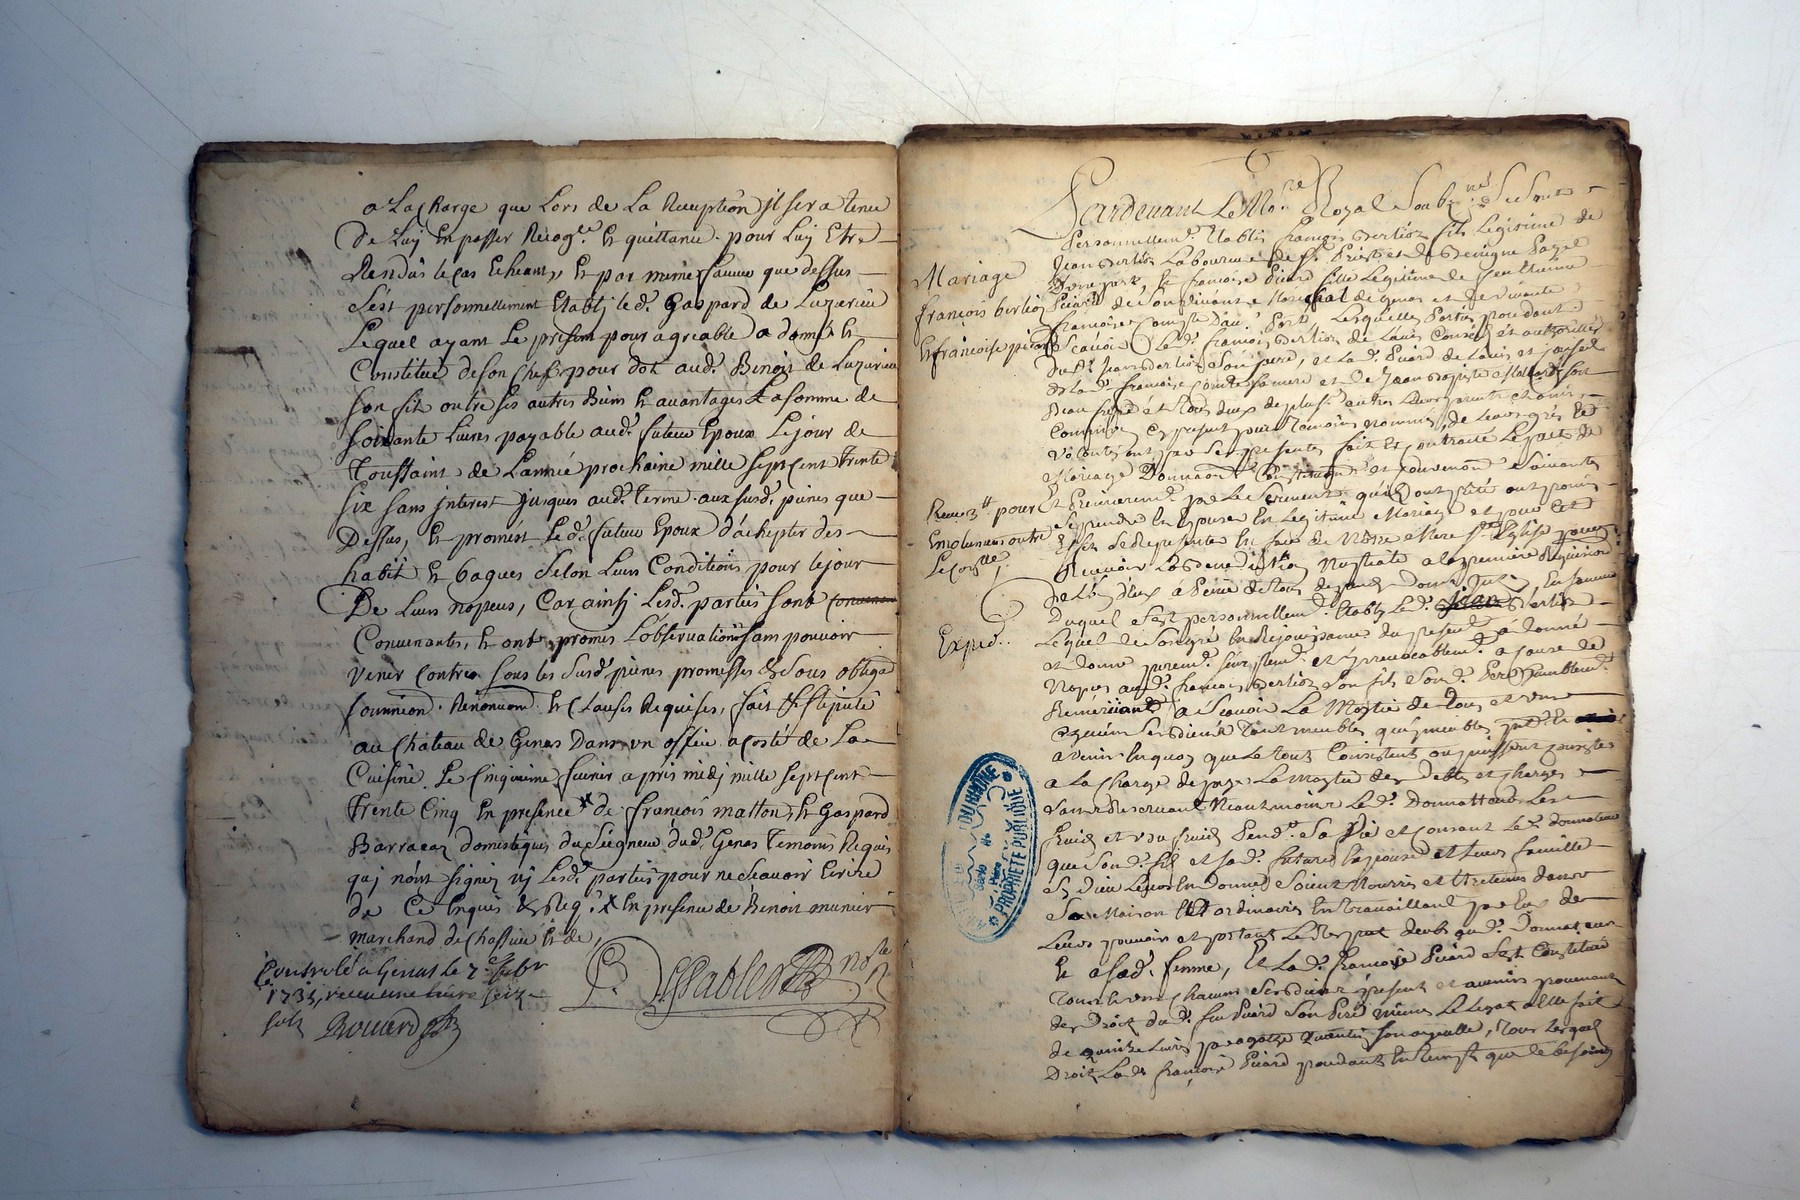 a La charge que Lors de La Reception jl sera tenu
De Luy En passer Recog.ce Et quittance pour Luy Etre
Rendus le cas Echeant, Et par meme faveur que dessus
s'est personnellement Etably led. Gaspard de Luzerieu
Lequel ayant Le present pour agreable a donné Et
Constitué de son Chef pour dot aud. Benoit de Luzerieu
son fils outre ses autres Biens Et avantages La somme de
soixante Livres payable aud. futeur Epoux Le jour de
Toussaint de L'année prochaine mille sept cent trente
six sans interest jusques aud. Terme aux susd. peines que
Dessus, Et promést Le d. futeur Epoux d'achepter des
habit Et bagues selon Leurs Conditions pour le jour
De Leurs nopces, Car ainsj Lesd. parties sont
Convenantes, Et ont promis L'observation sans pouvoir
venir Contre sous les susd. peines promesses & sous obliga
soumiōn. Renonciaōn. Et Clauses Requises, fait Et stipulé
au Château de Genas Dans un office a costé de La
Cuisine Le Cinquieme fevrier apres midj mille sept cent
trente Cinq En presence de françois matton, Et Gaspard
Barracaz domestiques du Seigneur dud. Genas Temoins Requis
quj n'ont signez nj Lesd. parties pour ne Scavoir Ecrire
de Ce Enquis & Req. En presence de Benoit munier
marchand de Chassieu Et de,
Controlé a Genas Le 7.e febr
1735, receu une livre seize
sols Rouard
Mariage
françois berlioz
Et françoise picard
Receu 3 pour
Emolumens outre
Le con.lle
Exped.
Pardevant Le No.re Royal Soub.né Se Sont
Personnellem. Etablis françois Berlioz fils Legitime de
Jean Berlioz Laboureur de St. Priest et de Benigne Payet
D'une part, Et françoise Picard fille Legitime de feu Etienne
Picard de Son vivant Marechal de Genas et de vivante
françoise Comte D'au. Part Lesquelles Parties procedant
Scavoir Led. françois Berlioz de L'avis Conseil et authorité
dud. Jean Berlioz Son pere, et Lad. Picard de L'avis et Conseil
de Lad. françoise Comte Sa mere et de Jean Baptiste son
Beau frere et Tous deux de plus. autres Leurs parents et amis
Communs Cy presents pour Temoins nommés, de Leurs grés Et
volontés ont par Ces presentes fait Et Contracté Les pacts de
Mariage Donnaōn Constitution et Convenaōn Suivantes
Et Premierem. par Le Serment qu'ils ont prété ont promis
Se prendre En Epoux En Legitime Mariage et pour Cet
Effet Se Representer En face de Nôtre Mere Ste Eglise pour
Recevoir La Benediction Nuptiale a La premiere Requisition
de L'un d'Eux a Peine de tous depends Dom. Int. En faveur
Duquel s'est personnellem. Etably Led. Jean Berlioz
Lequel de Son gré En Rejouissance du present a donné
et donne purem. Simplem. et irrevocablem. a Cause de
Nopces aud. françois Berlioz Son fils Sond. Pere humblem.
Remerciant a Scavoir La Moytié de Tous et uns
Chacuns Ses biens Tant meubles qu'immeubles presents Et
avenir En quoy que Le tout Consistent ou puissent Consister
a La Charge de payer La moytié des debtes et Charges
Sans Reservant Neantmoins Led. Donnatteur Les
fruits et usufruits Pend. Sa Vie et Consent Led. donnateur
que Sond. fils et Sad. future Epouse et Leurs famille
Si Dieu Leur En Donne Soient Nourris et Entretenus dans
Sa Maison et ordinaire En Travaillant par Eux de
Leurs pouvoir et portant Le Respect deub aud. Donnateur
Et a Sad. femme, Et Lad. françoise Picard s'est Constitué
Tous Et uns Chacuns Ses biens present et avenirs provenant
des Droits dud. feu Picard Son Pere même Le Legat a Elle fait
de quinze Livres par agathe quantin Son ayeulle, Tous Lesquels
Droits Lad. françoise Picard procedant En Tems que de besoin
PROPRIETE PUBLIQUE
DU RHÔNE